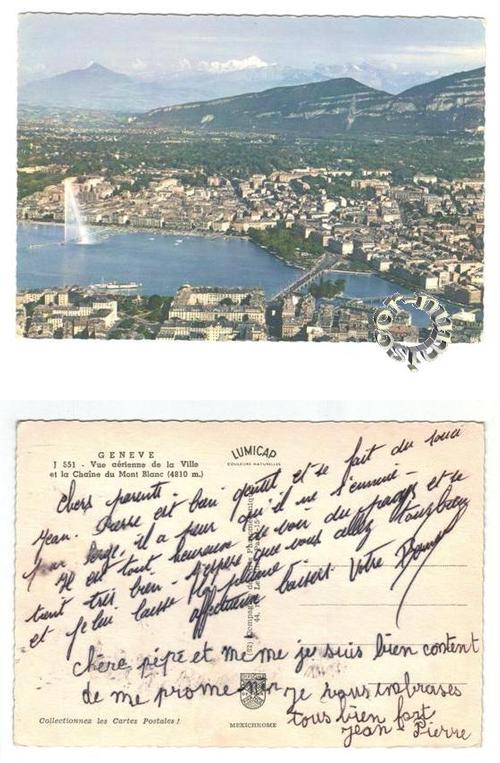 GENEVE
J 551 - Vue aérienne de la Ville
et la Chaîne du Mont Blanc (4810 m.)
LUMICAP
COULEURS NATURELLES
Chers parents -
Jean-Pierre est bien gentil et se fait du souci
pour Serge, il a peur qu'il ne s'ennuie -
Il est tout heureux de voir du pays et se
tient très bien - J'espère que vous allez tous bien
et je lui laisse la plume
affectueux baisers Votre
chère pépé et mémé je suis bien content
de me promenir je vous embrases
tous bien fort
Jean - Pierre
Collectionnez les Cartes Postales !
MEXICHROME